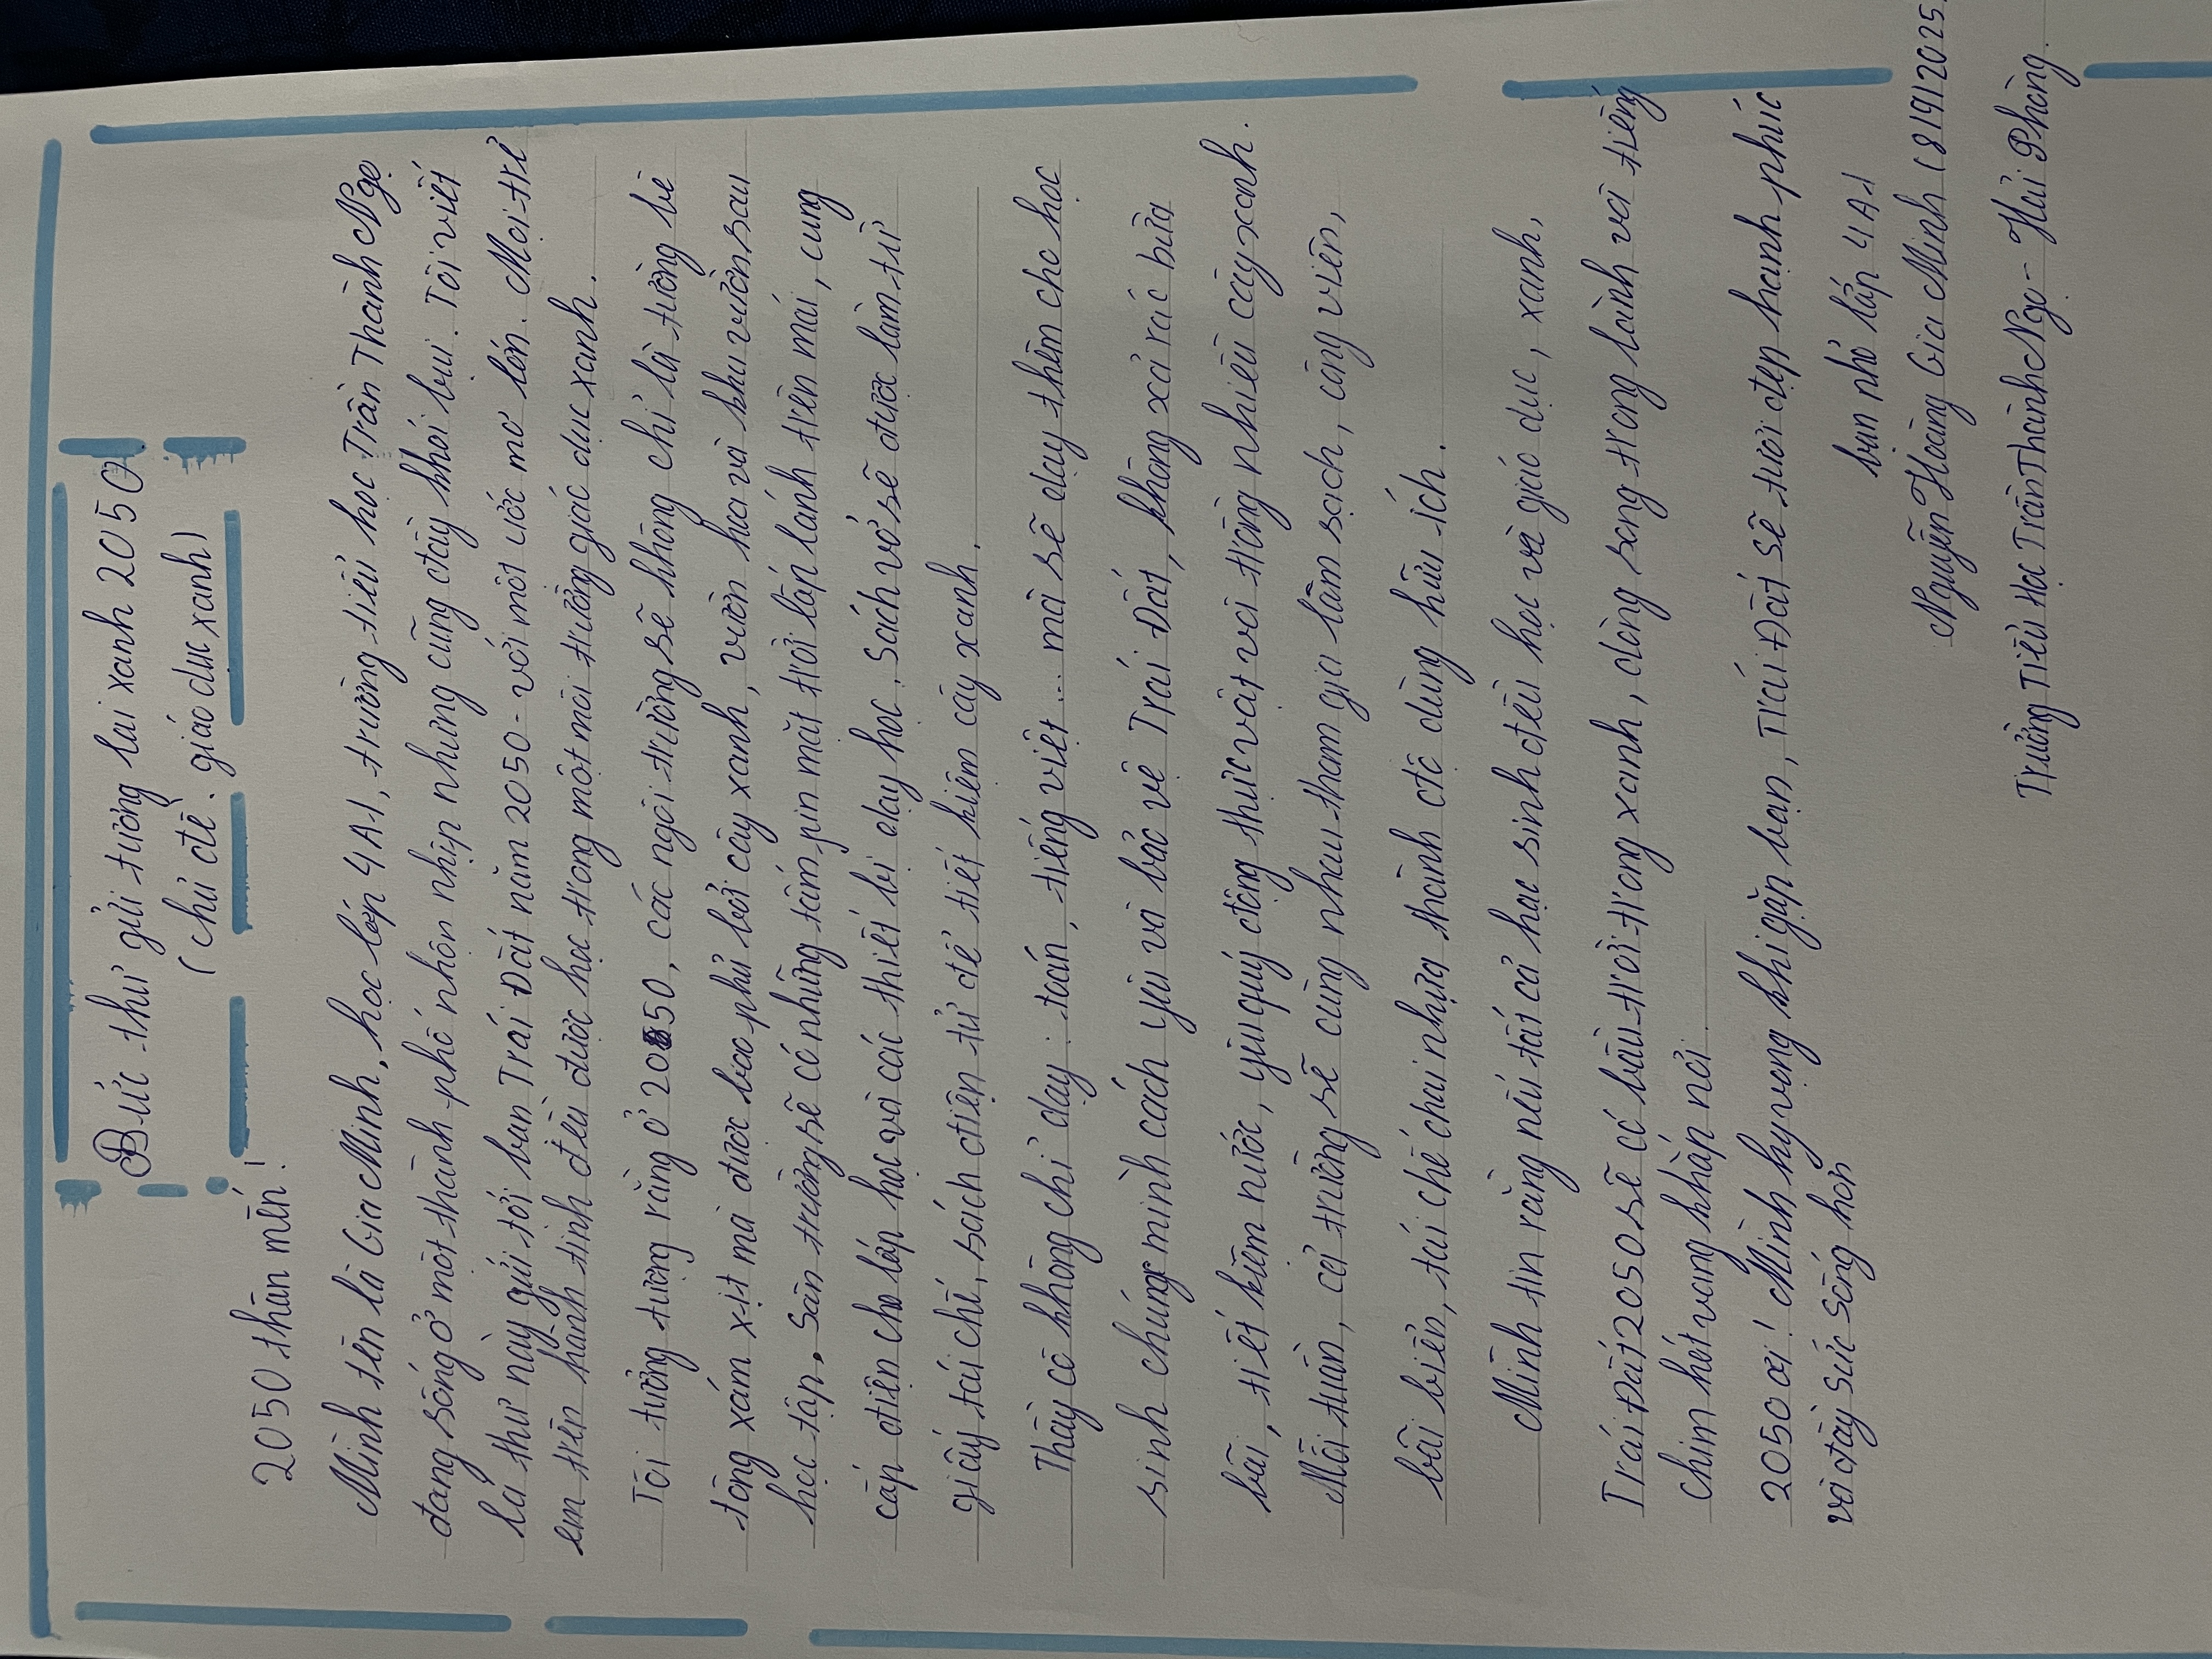 Bức thư gửi tương lai xanh 2050
(chủ đề: giáo dục xanh)
2050 thân mến!
Mình tên là Gia Minh, học lớp 4A1, trường tiểu học Trần Thành Ngọ
đang sống ở một thành phố nhộn nhịp nhưng cũng đầy khói bụi. Tôi viết
lá thư này gửi tới bạn Trái Đất năm 2050 - với một ước mơ lớn. Mọi trẻ
em trên hành tinh đều được học trong một môi trường giác dục xanh.
Tôi tưởng tượng rằng ở 2050, các ngôi trường sẽ không chỉ là tường bê
tông xám xịt mà được bao phủ bởi cây xanh, vườn hoa và khu vườn sau
học tập. Sân trường sẽ có những tấm pin mặt trời lấp lánh trên mái, cung
cấp điện cho lớp học và các thiết bị dạy học. Sách vở sẽ được làm từ
giấy tái chế, sách điện tử để tiết kiệm cây xanh.
Thầy cô không chỉ dạy: toán, tiếng việt... mà sẽ dạy thêm cho học
sinh chúng mình cách yêu và bảo vệ Trái Đất, không xả rác bừa
bãi, tiết kiệm nước, yêu quý động thực vật và trồng nhiều cây xanh.
Mỗi tuần, cả trường sẽ cùng nhau tham gia làm sạch, công viên,
bãi biển, tái chế chai nhựa thành đồ dùng hữu ích.
Mình tin rằng nếu tất cả học sinh đều học về giáo dục, xanh,
Trái Đất 2050 sẽ có bầu trời trong xanh, dòng sông trong lành và tiếng
chim hót vang khắp nơi
2050 ơi! Mình hy vọng khi gặp bạn, Trái Đất sẽ tươi đẹp hạnh phúc
và đầy sức sống hơn
bạn nhỏ lớp 4A1
Nguyễn Hoàng Gia Minh (8/9/2025)
Trường Tiểu Học Trần Thành Ngọ - Hải Phòng.